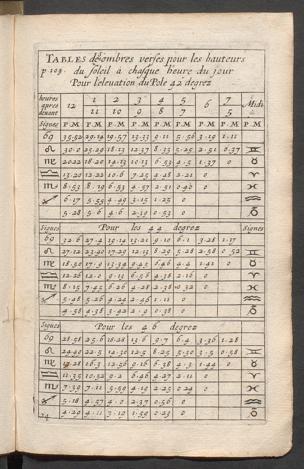 TABLES d'ombres verses pour les hauteurs
p 109. du soleil à chasque heure du jour
Pour l'elevation du Pole 42 degrez
heures apres devant 12 1 2 3 4 5 6 7 Midi
11 10 9 8 7 5
Signes P. M P. M P. M P. M P. M P. M P. M P. M
♌ 30.0 18.13 12.37 8.33 5.25 2.51 0.37 ♊
♍ 2022 18.20 14.13 10.13 6.53 4.5 1.37 0 ♉
♎ 13.20 12.22 10.6 7.25 4.48 2.21 0 ♈
♏ 8.53 8.19 6.53 4.57 2.51 0.40 0 ♓
♐ 6.17 5.55 4.49 3.15 1.25 0 ♒
5.28 5.6 4.6 2.39 0.53 0
Signes Pour les 44 degrez Signes
♋ 32.6 27.4 19.14 13.21 9.10 6.1 3.28 1.17
♌ 27.12 23.40 17.29 12.13 8.29 5.28 2.58 0.52 ♊
♍ 18.50 17.9 13.34 9.45 6.46 4.4 1.41 0 ♉
♎ 12.26 12.0 6.56 4.38 2.16 0 ♈
♏ 8.15 7.45 6.26 4.28 2.38 0.32 0 ♓
♐ 5.48 5.26 4.24 2.46 1.11 0 ♒
4.58 4.38 3.42 2.9 0.38 0
Signes Pour les 46 degrez
♋ 28.58 25.6 18.28 13.6 9.7 6.4 3.36 1.28
♌ 24.40 22.5 14.30 12.5 8.25 5.30 3.5 0.58 ♊
♍ 17.28 16.3 12.56 9.16 6.38 4.3 1.44 0 ♉
♎ 11.35 10.52 9.2 6.46 4.27 2.11 0 ♈
♏ 7.39 7.11 5.59 4.19 2.25 0.24 0 ♓
♐ 5.18 4.57 4.0 2.37 0.56 0 ♒
4.29 4.11 3.19 1.59 0.23 0